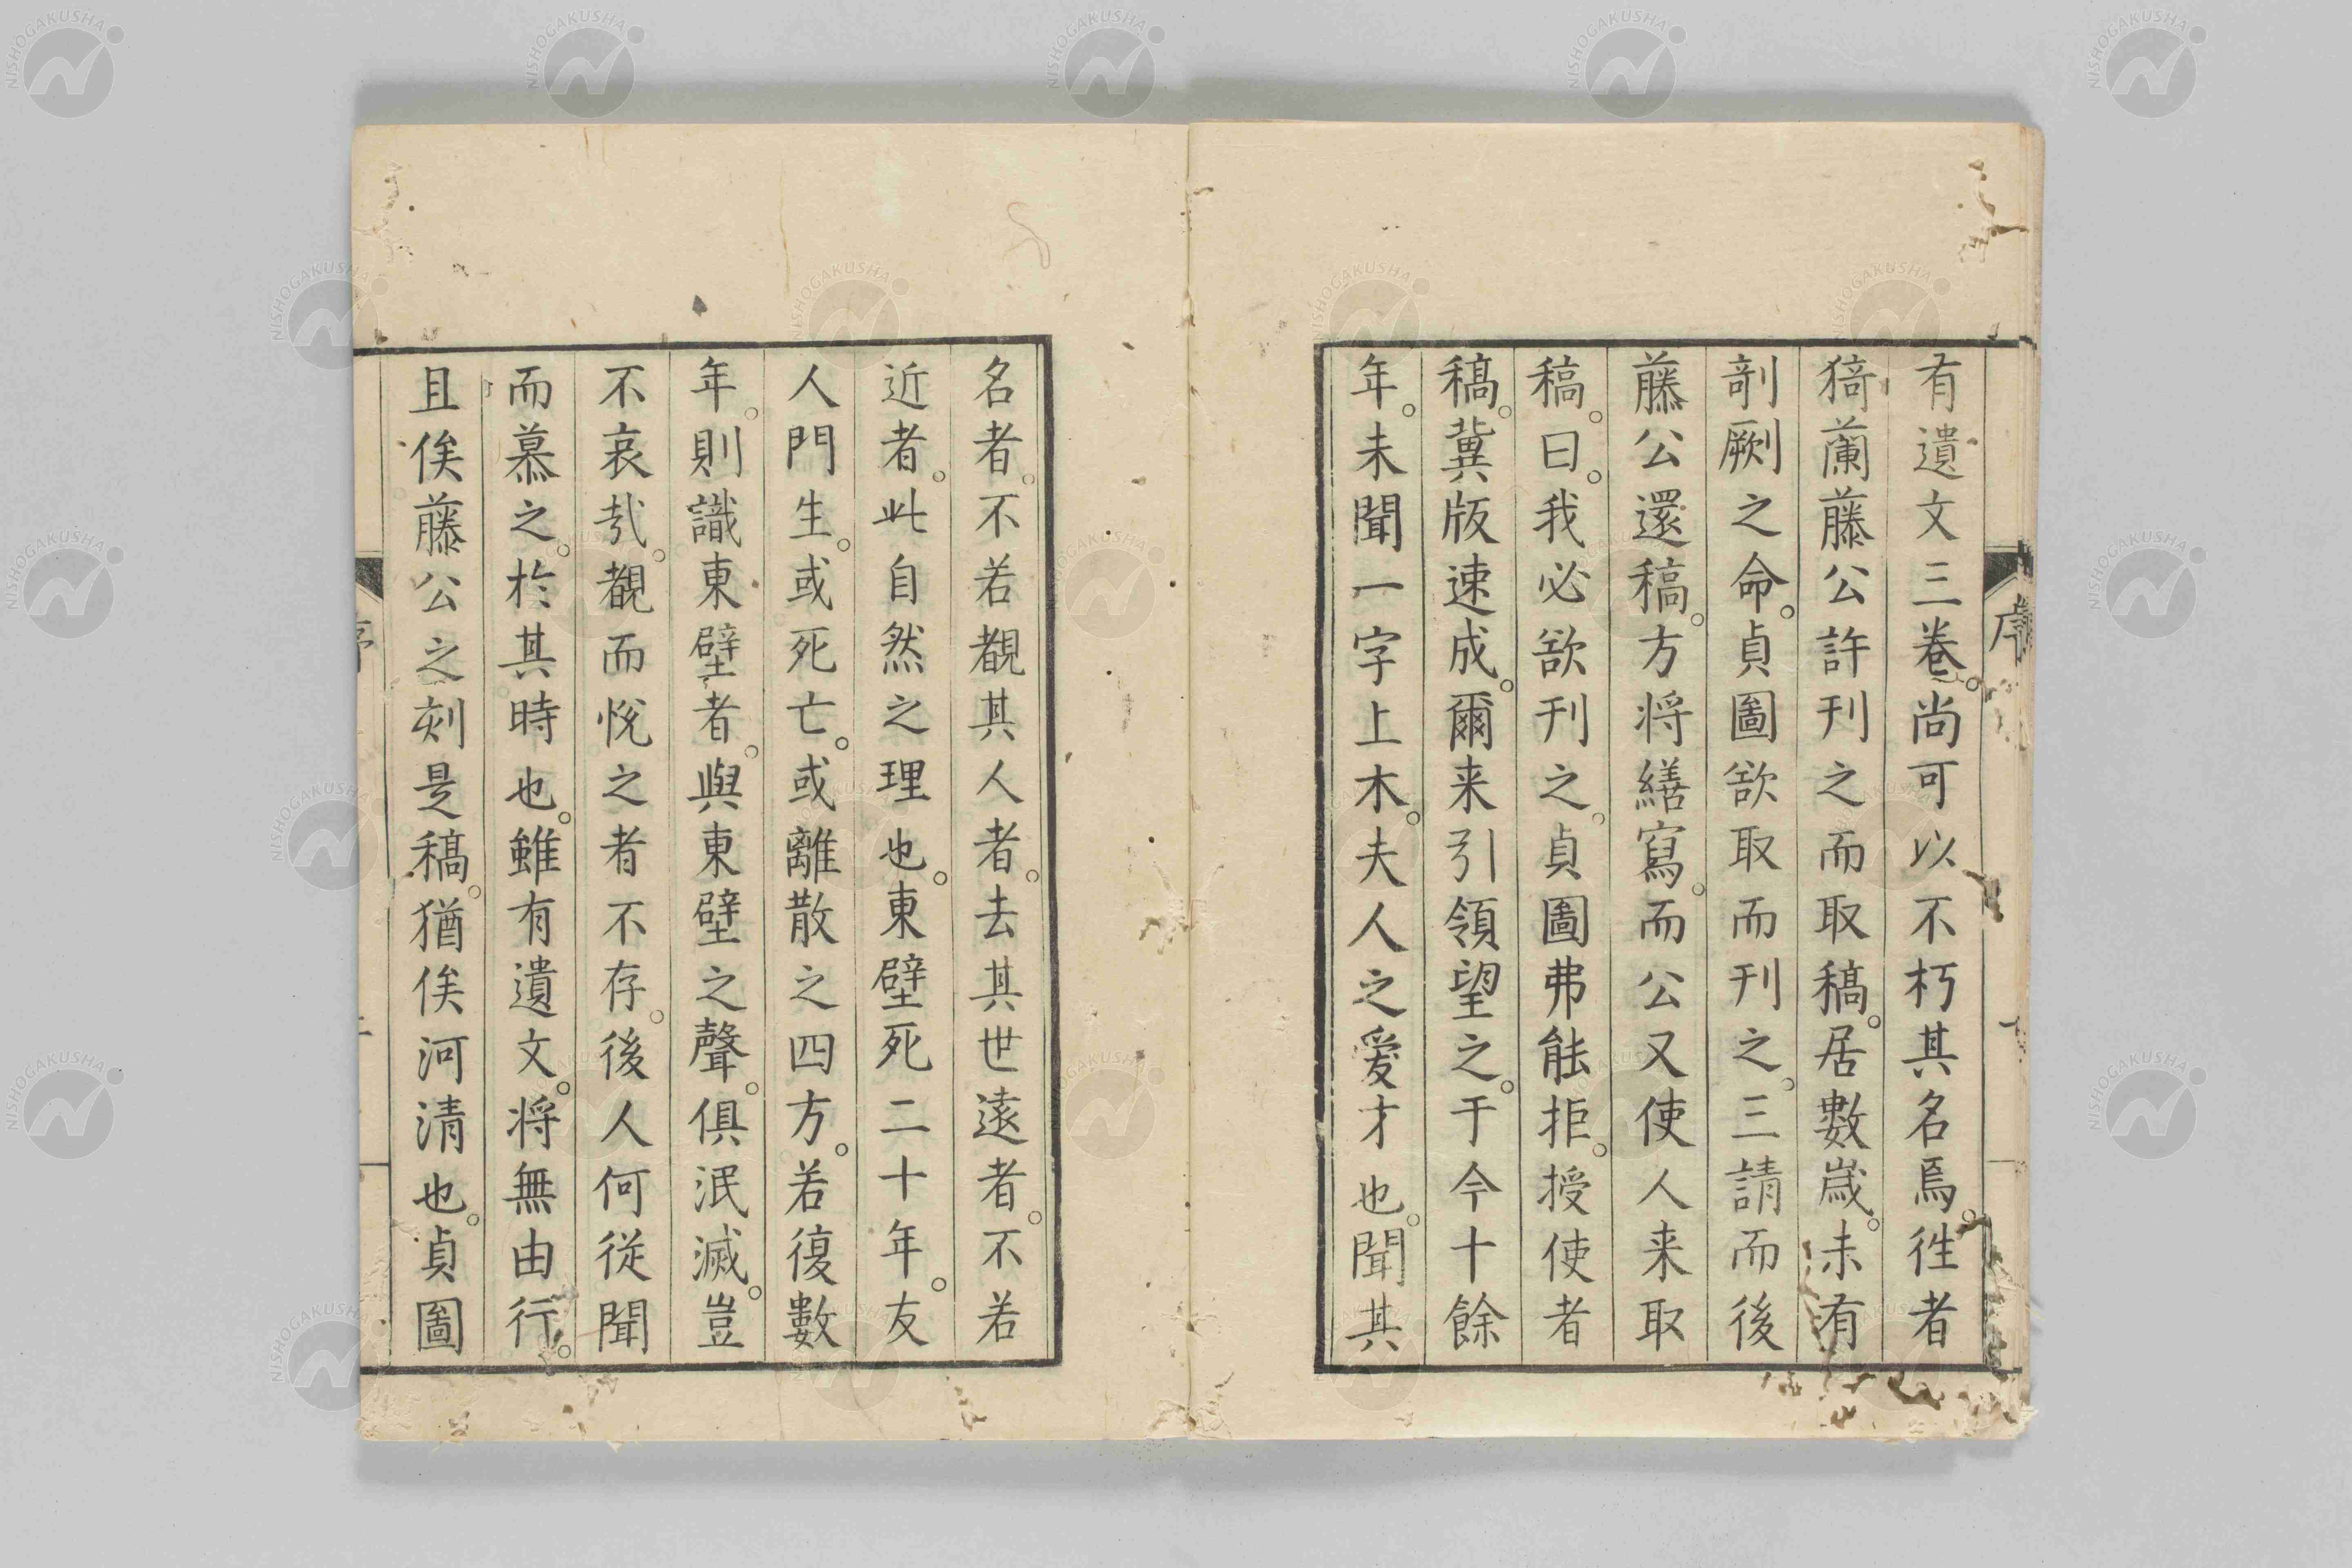 有遺文三卷。尚可以不朽其名焉。徃者
猗蘭藤公許刊之而取稿。居數歲。未有
剞劂之命。貞圖欲取而刊之。三請而後
藤公還稿。方将繕寫。而公又使人来取
稿。曰。我必欲刊之。貞圖弗能拒。授使者
稿。冀版速成。爾来引領望之。于今十餘
年。未聞一字上木。夫人之愛才也。聞其
名者。不若覩其人者。去其世遠者。不若
近者。此自然之理也。東壁死二十年。友
人門生。或死亡。或離散之四方。若復數
年。則識東壁者。與東壁之聲。俱泯滅。豈
不哀哉。覩而悅之者不存。後人何從聞
而慕之。於其時也。雖有遺文。将無由行。
且俟藤公之刻是稿。猶俟河清也。貞圖
序
NISHOGAKUSHA